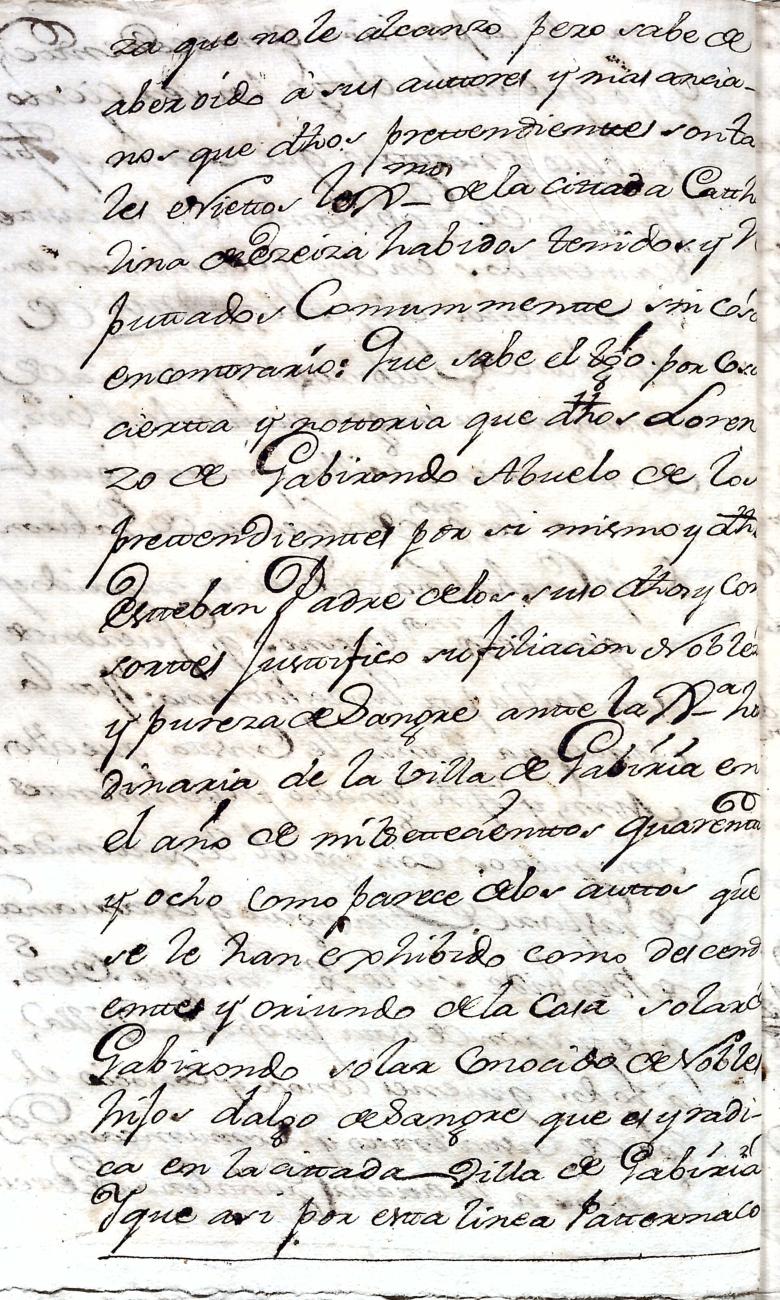 za que no le alcanzo pero sabe de
aber oido â sus auttores y mas ancia-
nos que dhos prettendienttes son ta
les eNiettos lexmos de la cittada Catth
lina de Ezeiza habidos tenidos y R
puttados Comummentte sin cos
encontrario: Que sabe el tgo. por Cos
cierta y nottoria que dhos Loren
zo de Gabirondo Abuelo de los
prettendienttes por si mismo y dh
Estteban Padre de los suso dhos y con
sorttes Justtifico su filiacion Noblez
y pureza de Sangre antte la Xa ho
dinaria de la Villa de Gabiria en
el año de mil settecienttos quarentta
y ocho como parece de los auttos que
se le han exhibido como descend
enttes y oriundo de la Casa solar
Gabirondo solar Conocido de Nobles
hijos dalgo de Sangre que es y radi-
ca en la cittada Villa de Gabiria
Y que asi por estta linea Patterna co